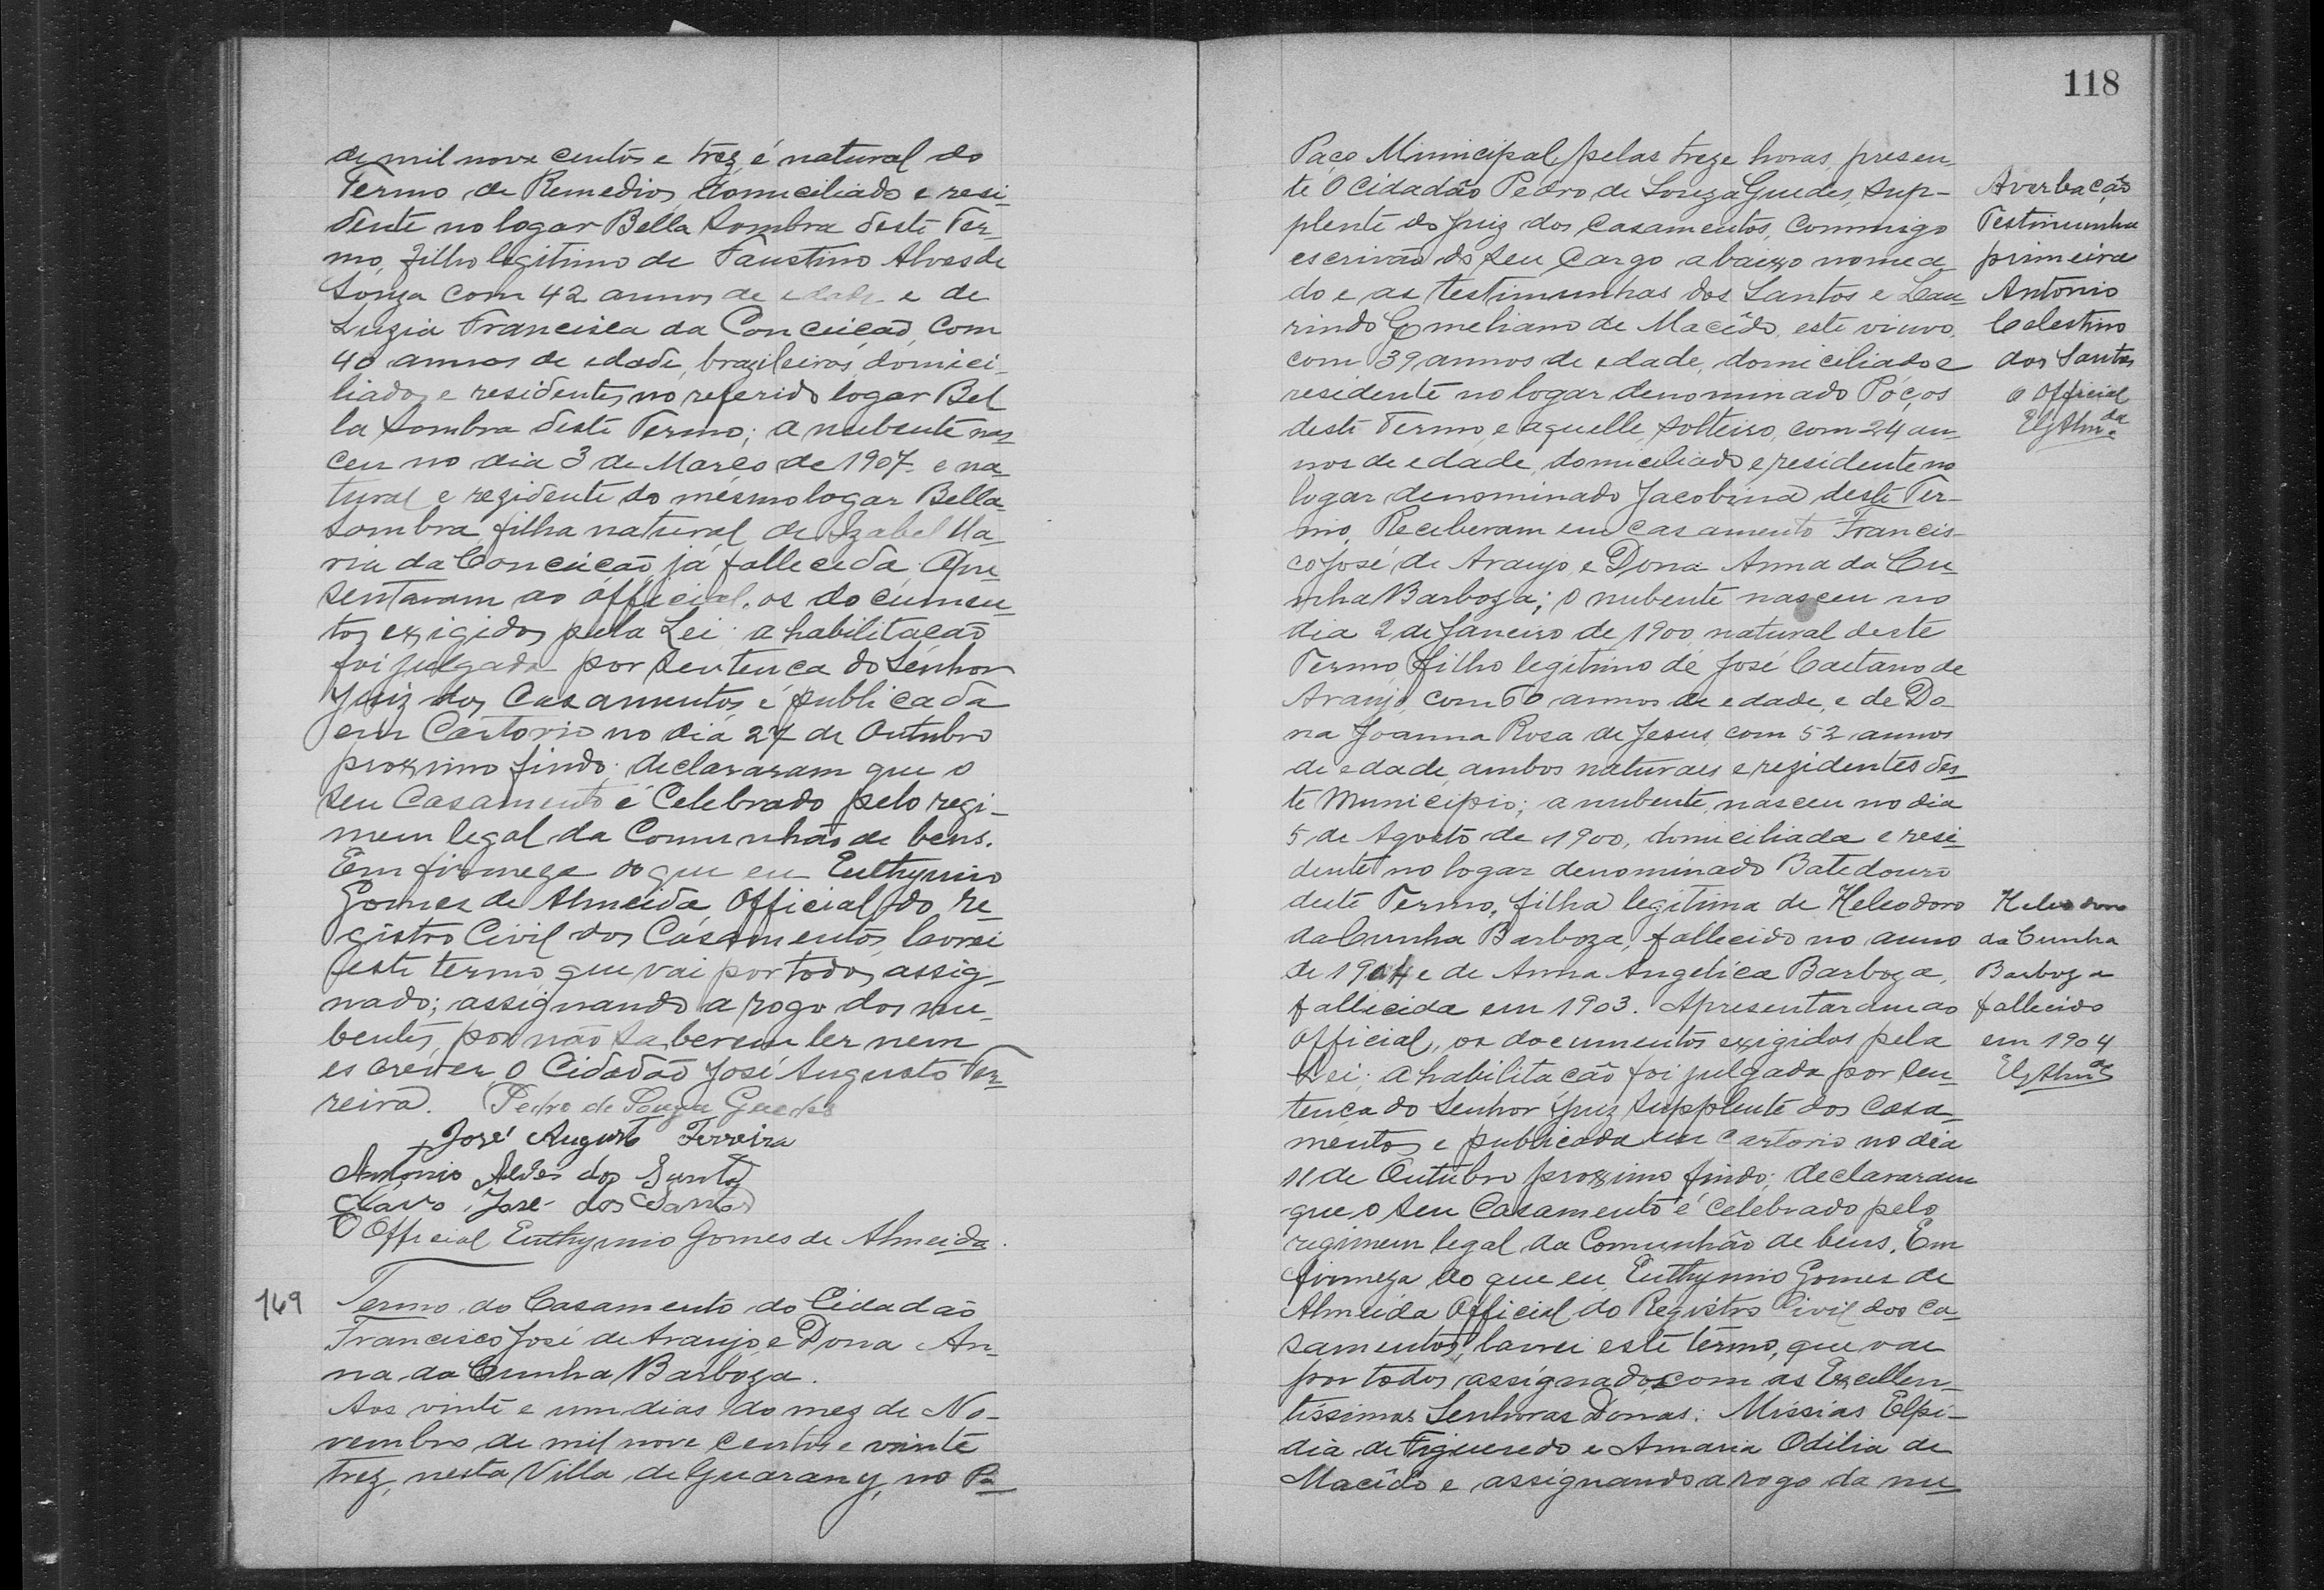 de mil nove centos e trez, é natural do
Termo de Remedios, domiciliado e resi-
dente no logar Bella Sombra deste Ter-
mo, filho legitimo de Faustino Alves de
Souza com 42 annos de edade e de
Luzia Francisca da Conceição, com
40 annos de edade, brazileiros, domici-
liados e residentes no referido logar Bel
la Sombra deste Termo; a nubente nas
ceu no dia 3 de Março de 1907 e na
tural e rezidente do mesmo logar Bella
Sombra, filha natural de Izabel Ma-
ria da Conceição já fallecida. Apre-
sentaram ao official, os documen-
tos exigidos pela Lei; a habilitação
foi julgada por sentença do Senhor
Juiz dos Casamentos, e publicada
em Cartorio no dia 27 de Outubro
proximo findo; declararam que o
seu Casamento é Celebrado pelo regi-
mem legal da Comunhão de bens.
Em firmeza do que eu Euthymio
Gomes de Almeida, Official do re-
gistro Civil dos Casamentos, lavrei
este termo, que vai por todos assig-
nado; assignando a rogo dos nu-
bentes, por não saberem ler nem
escrever, o Cidadão José Augusto Fer-
reira. Pedro de Souza Guedes
José Augusto Ferreira
Antonio Alves dos Santos
Olavo José dos Santos
O Official Euthymio Gomes de Almeida.
169 Termo do Casamento do Cidadão
Francisco José de Araujo e Dona An-
na da Cunha Barboza.
Aos vinte e um dias do mez de No-
vembro de mil nove centos e vinte
trez, nesta Villa de Guarany, no Pa
118
Paço Municipal, pelas treze horas, presen-
te o Cidadão Pedro de Souza Guedes, Sup-
plente do Juiz dos Casamentos, Commigo
escrivão do seu Cargo abaixo nomea-
do e as testimunhas dos Santos e Lau-
rindo Emeliano de Macêdo, este viuvo,
com 39 annos de edade, domiciliado e
residente no logar denominado Póços
deste Termo, e aquelle, Solteiro, com 24 an-
nos de edade, domiciliado e residente no
logar denominado Jacobina deste Ter-
mo, Receberam em casamento Francis-
co José de Araujo, e Dona Anna da Cu-
nha Barboza; o nubente nasceu no
dia 2 de Janeiro de 1900 natural deste
Termo, filho legitimo de José Caetano de
Araujo, com 60 annos de edade, e de Do
na Joanna Rosa de Jesus, com 52 annos
de edade, ambos naturaes e rezidentes des-
te Municipio; a nubente, nasceu no dia
5 de Agosto de 1900, domiciliada e resi-
dente no logar denominado Batedouro
deste Termo, filha legitima de Heleodoro
da Cunha Barboza, fallecido no anno
de 1904 e de Anna Angelica Barboza,
fallecida em 1903. Apresentaram ao
official, os documentos exigidos pela
Lei; a habilitação foi julgada por Sen-
tença do Senhor Juiz Supplente dos Casa-
mentos, e publicada em Cartorio no dia
11 de Outubro proximo findo; declararam
que o seu Casamento é celebrado pelo
regimem legal da Comunhão de bens. Em
firmeza do que eu, Euthymio Gomes de
Almeida, Official do Registro Civil dos Ca-
samentos, lavrei este termo, que vae
por todos assignado, com as Excellen-
tissimas Senhoras Donas: Missias Elpi-
dia de Figueredo e Amaria Odilia de
Macêdo e assignando a rogo da nu
Averbação
Testimunha
primeira
Antonio
Celestino
dos Santos
O Official
Heleodoro
da Cunha
Barboza
fallecido
em 1904